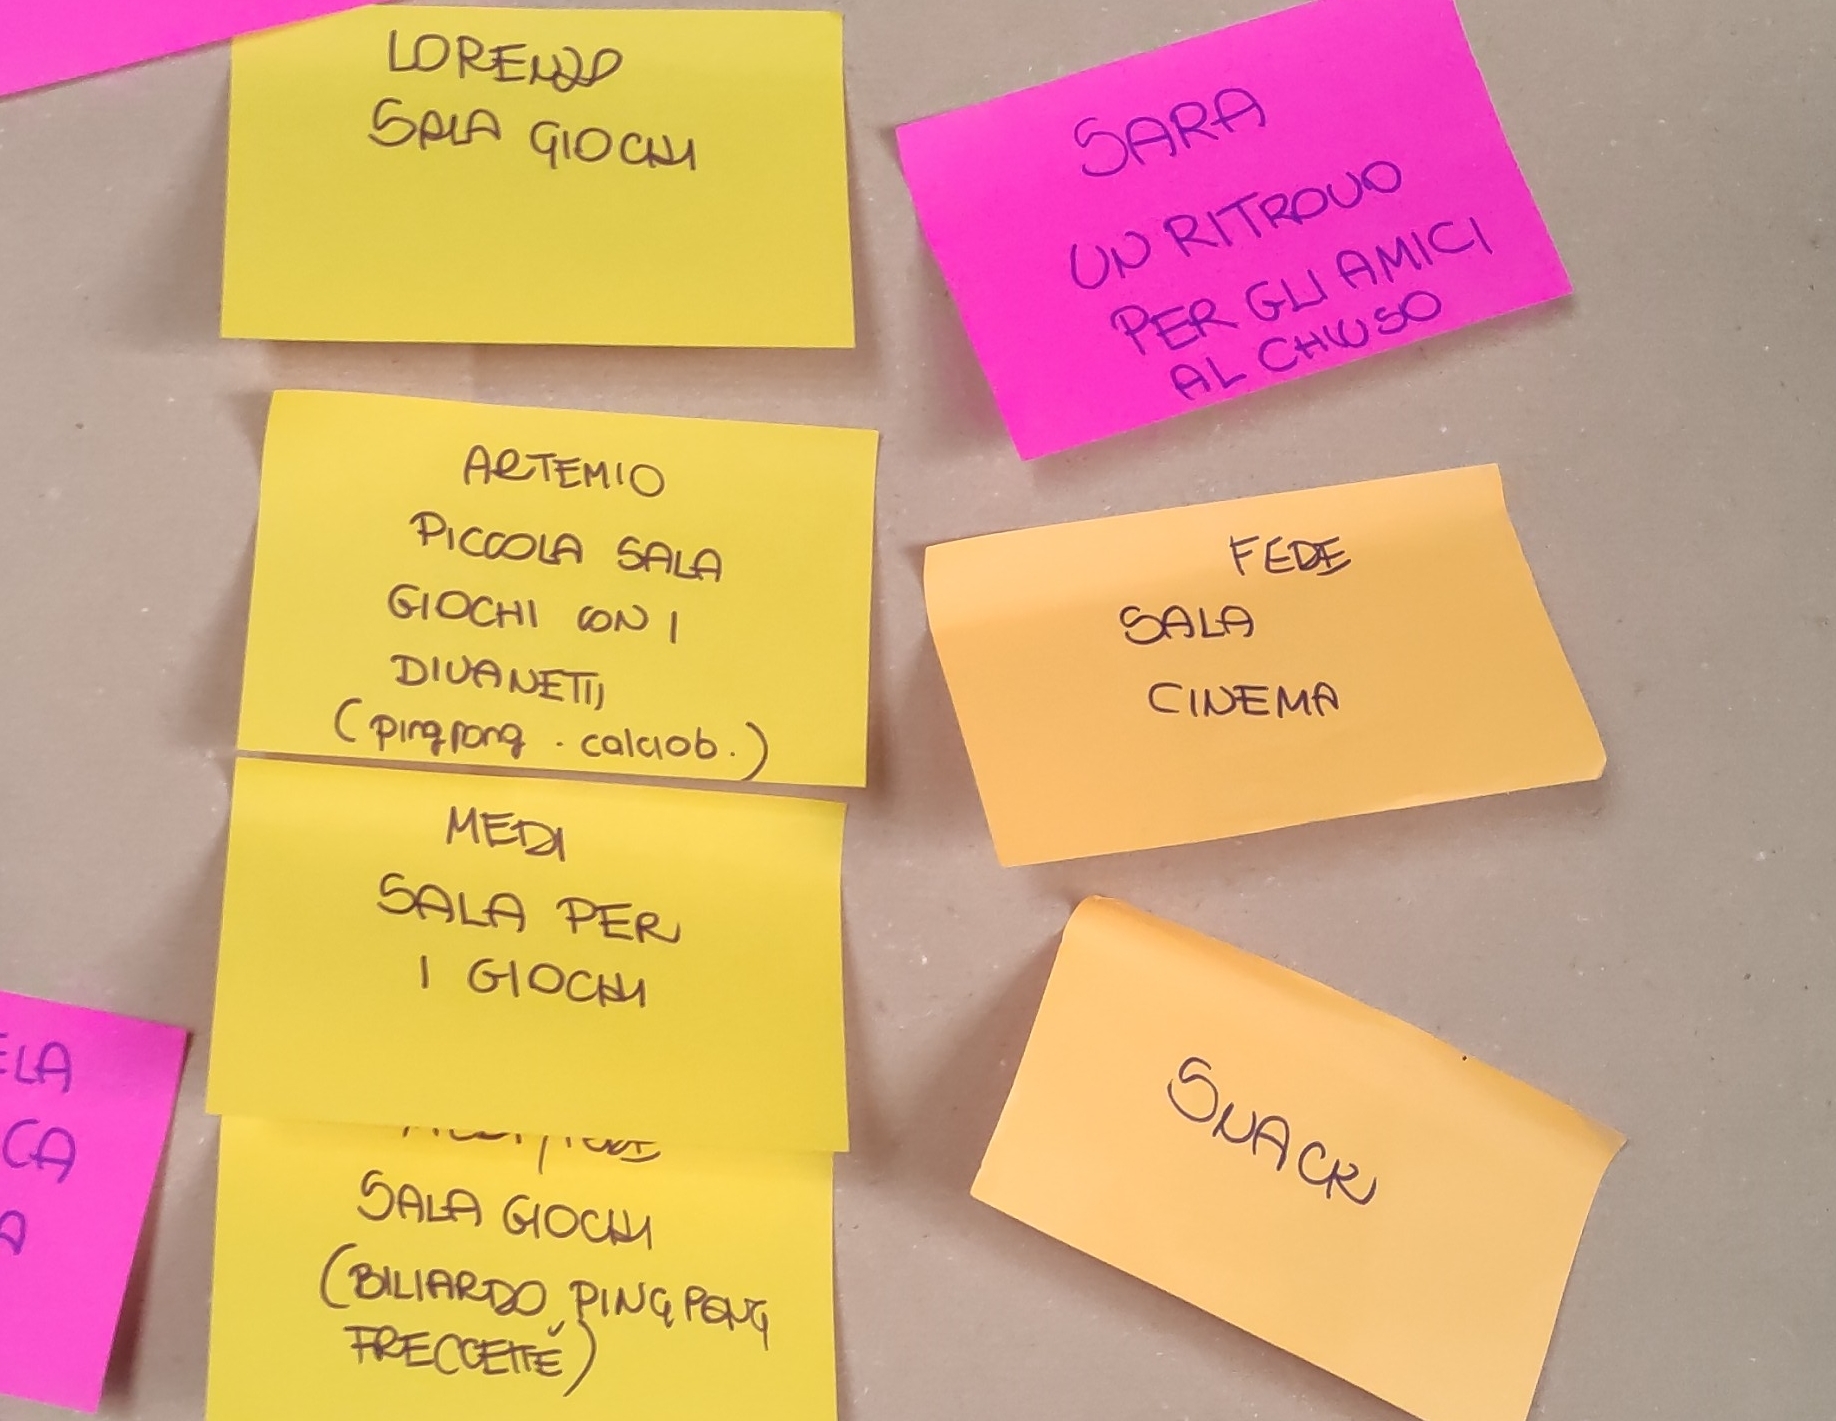 LORENZO
SALA GIOCHI
ARTEMIO
PICCOLA SALA
GIOCHI CON I
DIVANETTI,
(pingpong - calciob.)
MEDI
SALA PER
I GIOCHI
SALA GIOCHI
(BILIARDO, PING PONG
FRECCETTE)
SARA
UN RITROVO
PER GLI AMICI
AL CHIUSO
FEDE
SALA
CINEMA
SNACK
ELA
CA